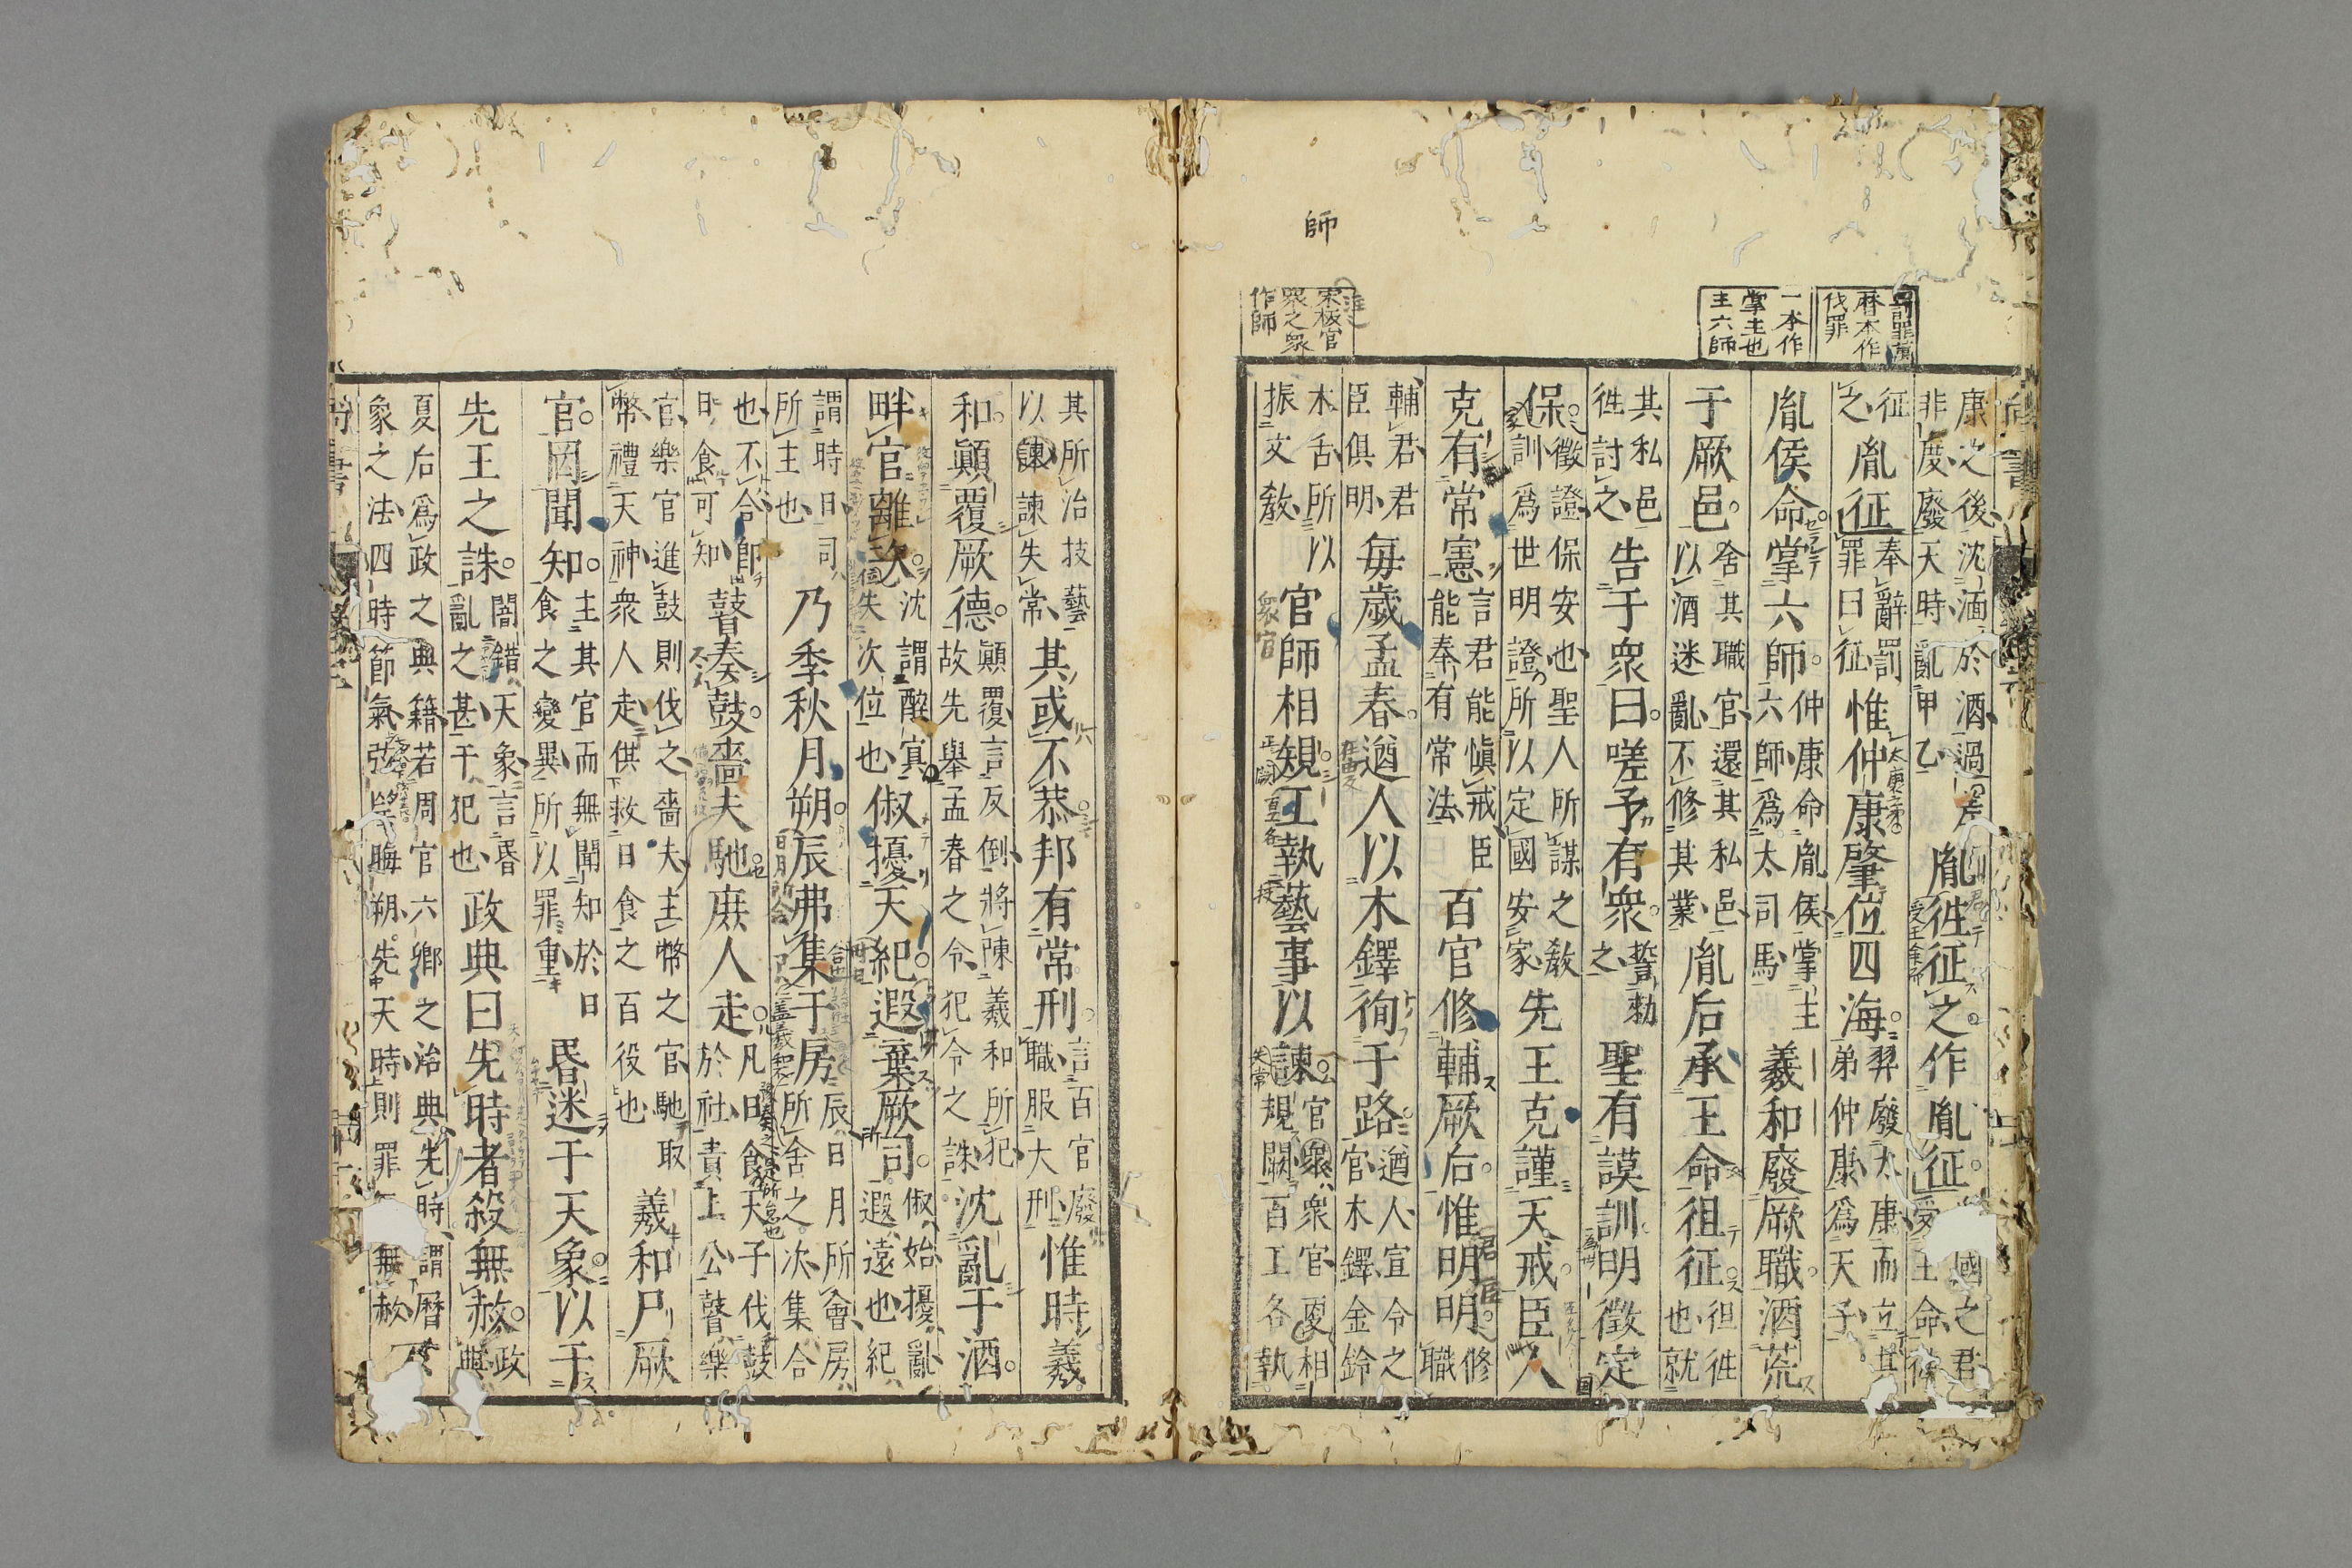 師
一本作
掌主也
主六師
暦本作
伐罪
宋板官
眾之眾
作師
康之後沈湎於酒過差
非度廢天時亂甲乙
胤往征之作胤征
國之君
受王命
征
之
胤征
奉辭罰
罪曰征
惟仲康肇位四海
羿廢太康而立其
弟仲康爲天子
胤侯命掌六師
仲康命胤侯掌主
六師爲太司馬
羲和廢厥職酒荒
于厥邑
舍其職官還其私邑
以酒迷亂不修其業
胤后承王命徂征
徂徃
也就
其私邑
徃討之
告于衆曰嗟予有衆
誓勑
之
聖有謨訓明徵定
保
徵證保安也聖人所謀之教
訓爲世明證所以定國安家
先王克謹天戒臣人
克有常憲
言君能慎戒臣
能奉有常法
百官修輔厥后惟明明
修
職
輔君君
臣俱明
每歲孟春遒人以木鐸徇于路
遒人宣令之
官木鐸金鈴
木舌所以
振文教
官師相規工執藝事以諫
官衆衆官更相
規闕百工各執
其所治技藝
以諫諫失常
其或不恭邦有常刑
言百官廢
職服大刑
惟時羲
和顚覆厥德
顚覆言反倒將陳羲和所犯
故先舉孟春之令犯令之誅
沈亂于酒
畔官離次
沈謂醉冥
失次位也
俶擾天紀遐棄厥司
俶始擾亂
遐遠也紀
謂時日司
所主也
乃季秋月朔辰弗集于房
辰日月所會房
所舍之次集合
也不合即
日食可知
瞽奏鼓嗇夫馳庶人走
凡日食天子伐鼓
於社責上公瞽樂
官樂官進鼓則伐之嗇夫主幣之官馳取
幣禮天神衆人走供救日食之百役也
羲和尸厥
官罔聞知
主其官而無聞知於日
食之變異所以罪重
昏迷于天象以干
先王之誅
闇錯天象言昏
亂之甚干犯也
政典曰先時者殺無赦
政
典
夏后爲政之典籍若周官六卿之治典先時謂曆
象之法四時節氣弦望晦朔先天時則罪
無赦